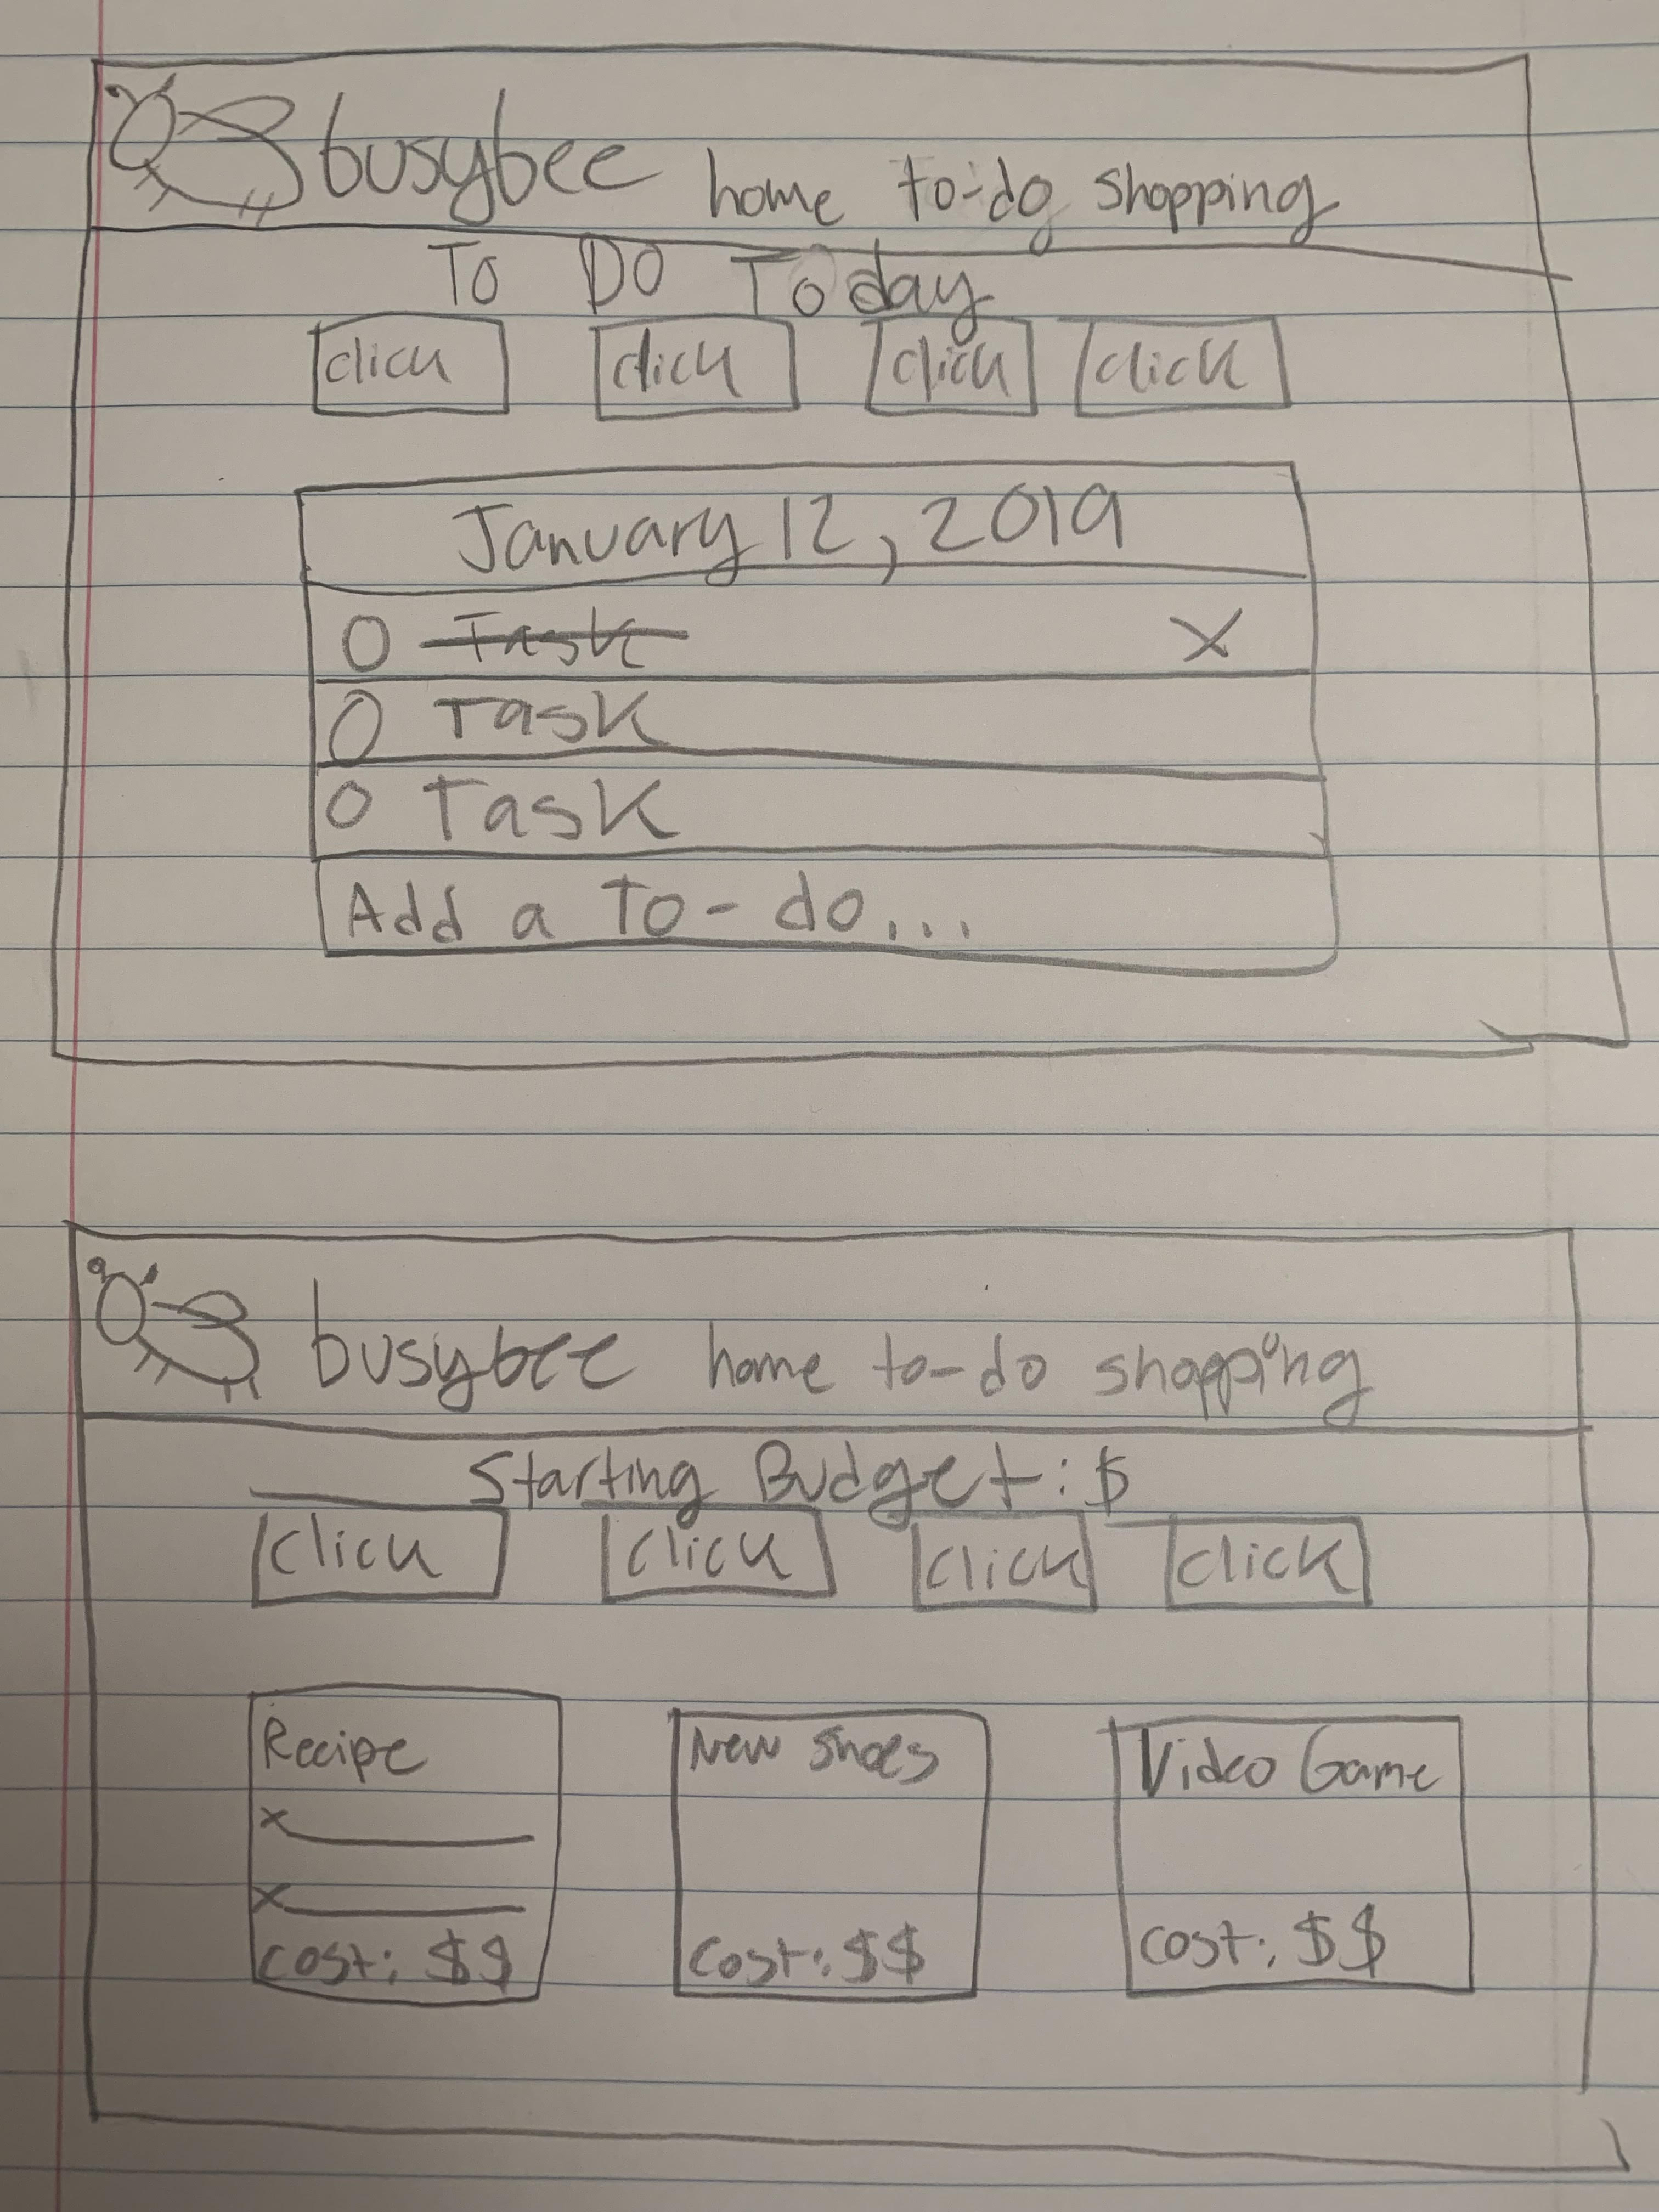 busybee home to-do shopping
To Do Today
click click click click
January 12, 2019
O Task X
O Task
O Task
Add a To-do...
busybee home to-do shopping
Starting Budget: $
click click click click
Recipe New Shoes Video Game
x
x
cost: $$ cost: $$ cost: $$